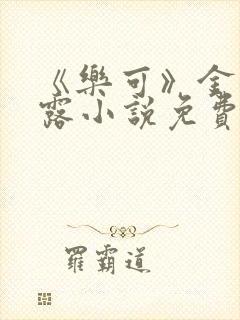 《樂可》金
露小說免費
羅霸道